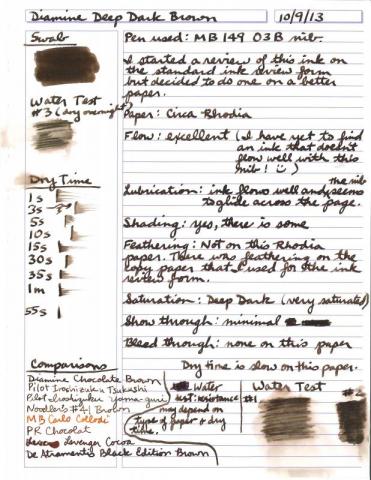 Diamine Deep Dark Brown
10/9/13
Swab
Pen used: MB 149 03B nib.
I started a review of this ink on
the standard ink review form
but decided to do one on a better
paper.
Water Test
#3 (dry overnight)
Paper: Circa Rhodia
Flow: excellent (I have yet to find
an ink that doesn't
flow well with this
nib! ☺)
Dry Time
1s
3s
5s
10s
15s
30s
35s
1m
55s
Lubrication: ink flows well and seems
the nib
to glide across the page.
Shading: yes, there is some
Feathering: Not on this Rhodia
paper. There was feathering on the
copy paper that I used for the ink
review form.
Saturation: Deep Dark (very saturated)
Show through: minimal
Bleed through: none on this paper
Dry time is slow on this paper.
Comparisons
Diamine Chocolate Brown
Pilot Iroshizuku Tsukushi
Pilot Iroshizuku yama-guri
Noodler's #41 Brown
MB Carlo Collodi
PR Chocolat
Levenger Cocoa
De Atramentis Black Edition Brown
Water
test: resistance
may depend on
type of paper & dry
time.
Water Test
#1
#2